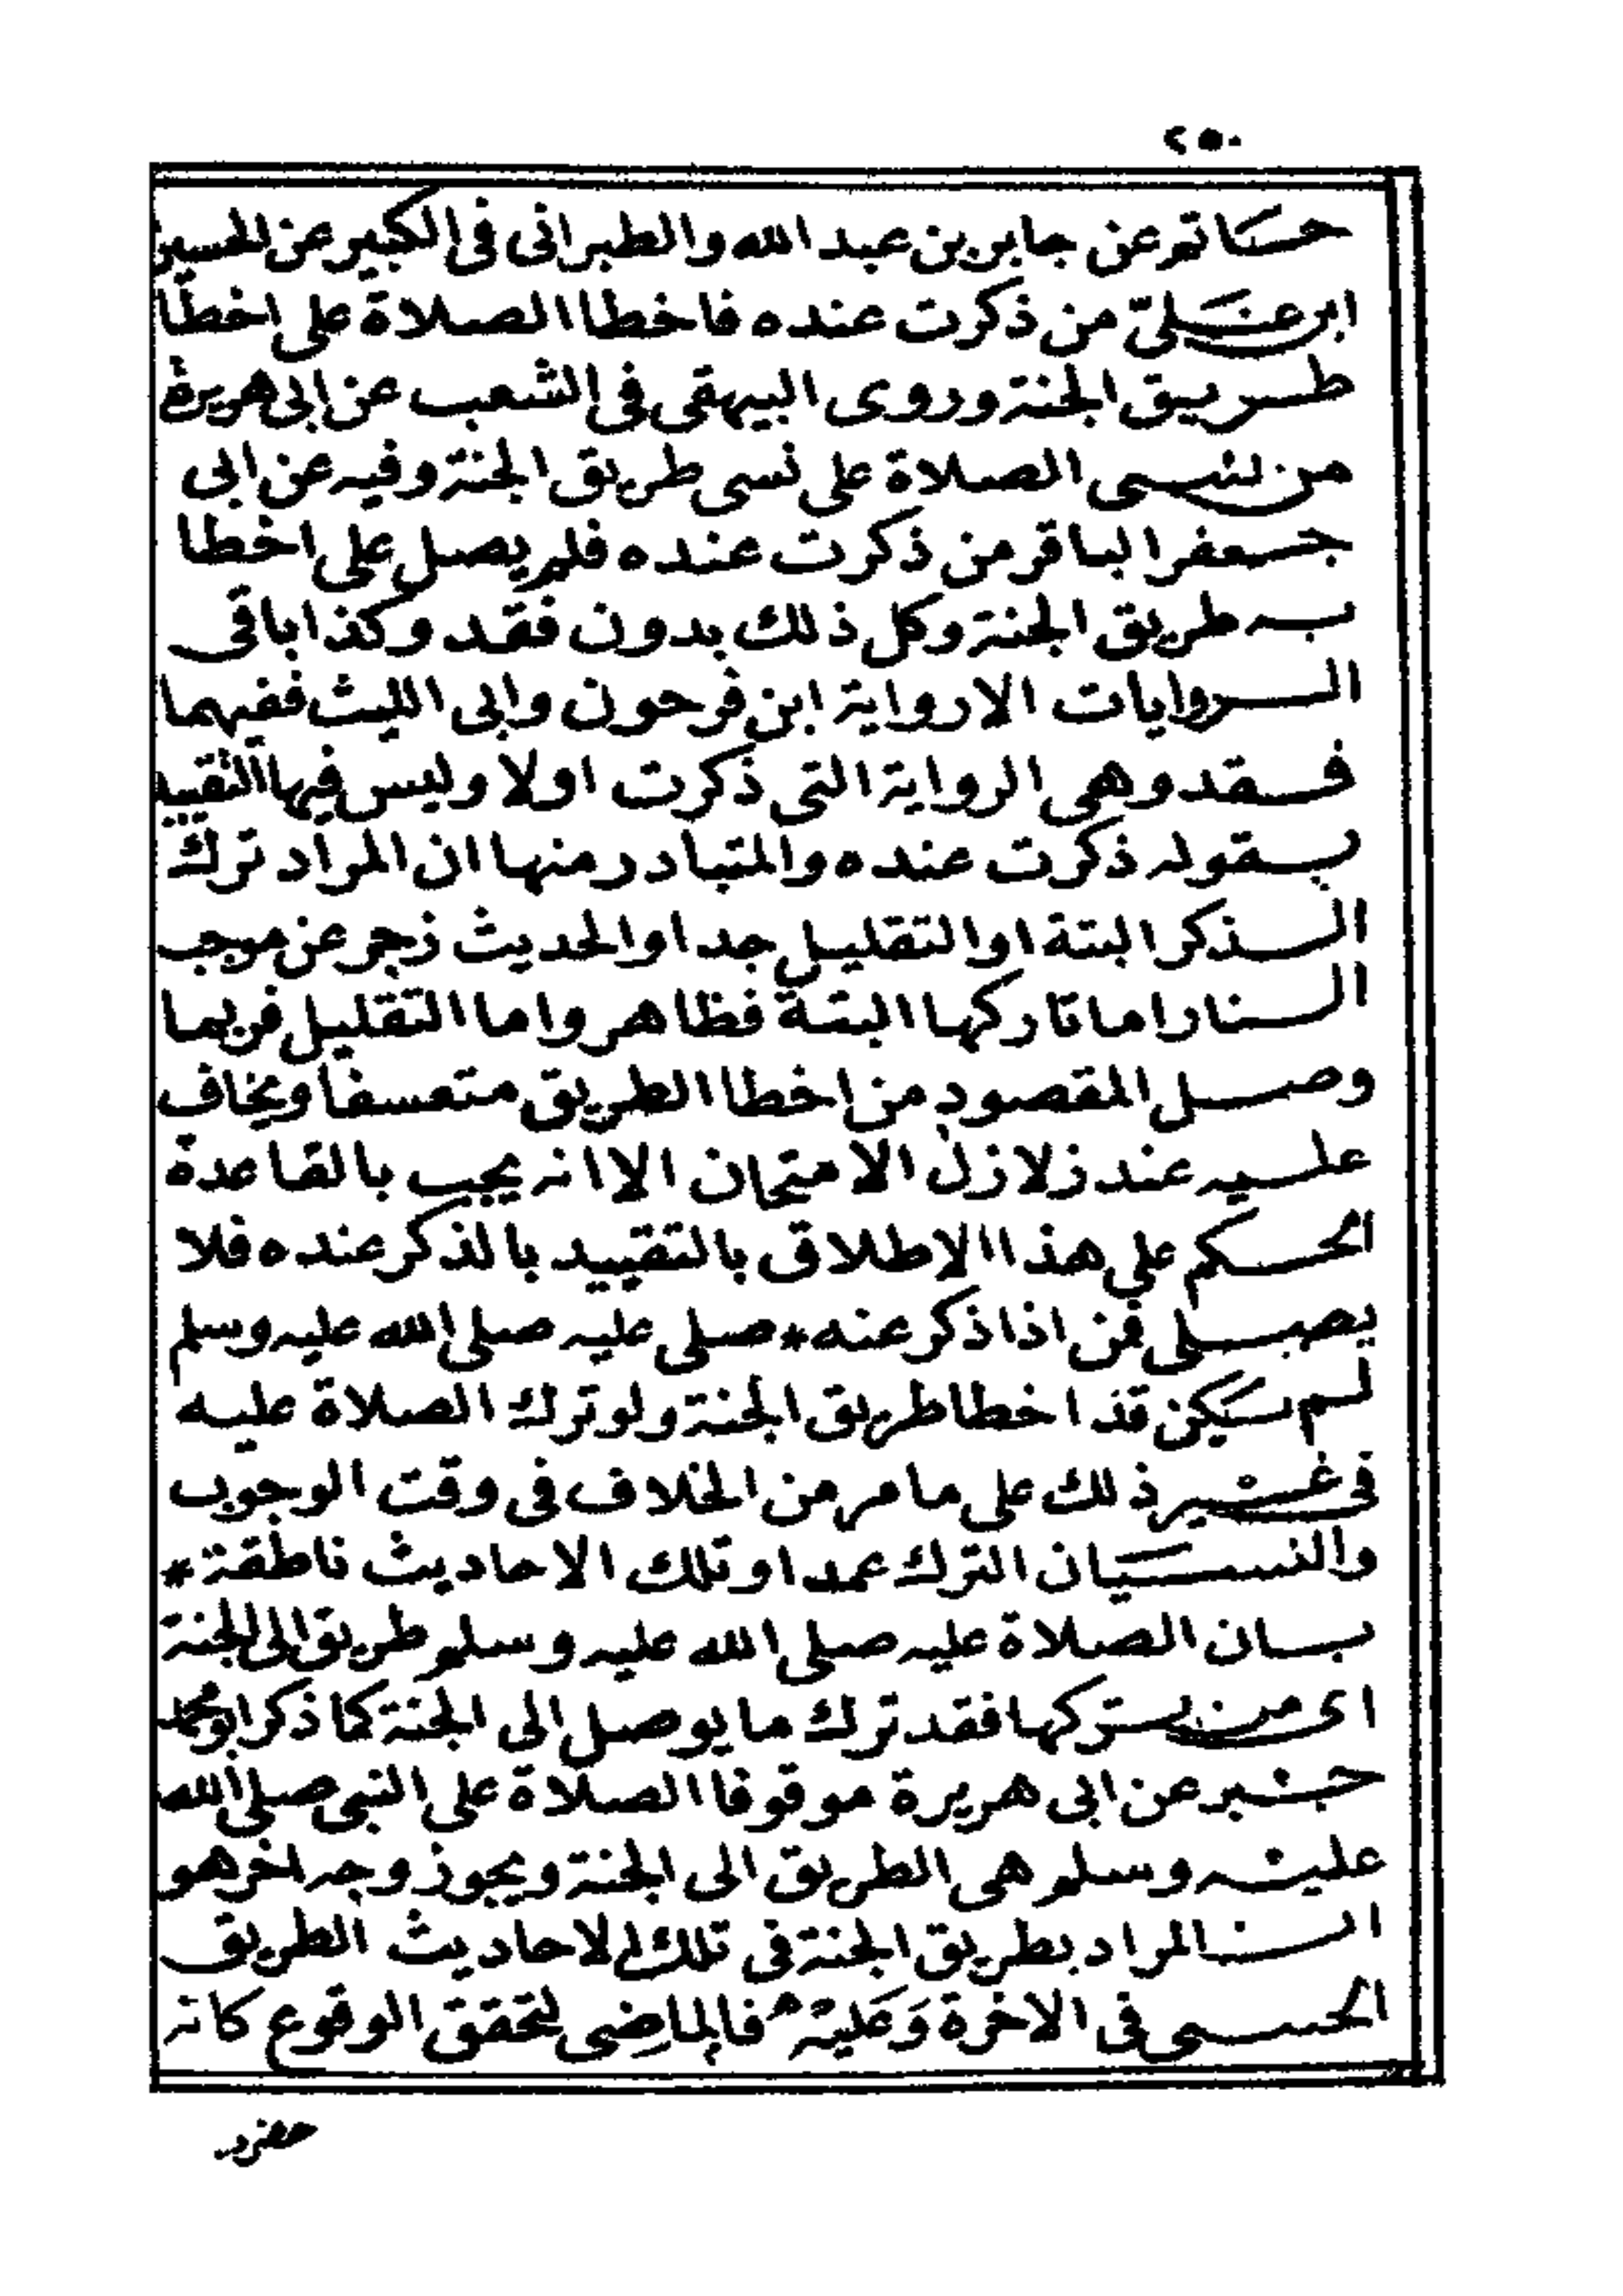 ٢٥٠
حاتم عن جابر بن عبد الله والطبرانى فى الكبير عن الحسين
ابن على من ذكرت عنده فاخطا الصلاة على اخطا
طريق الجنة وروى البيهقى فى الشعب عن ابى هريرة
من نسى الصلاة على نسى طريق الجنة وفيه عن ابى
جعفر الباقر من ذكرت عنده فلم يصل على اخطا
به طريق الجنة وكل ذلك بدون فقد وكذا باقى
الروايات الا رواية ابن فرحون وابى الليث ففيهما
فقد وهى الرواية التى ذكرت اولا وليس فيها التقييد
بقوله ذكرت عنده والمتبادر منها ان المراد ترك
الذكر البتة او التقليل جدا والحديث زجر عن موجب
النار اما تاركها البتة فظاهر واما التقليل فربما
وصل المقصود من اخطا الطريق متعسفا ويخاف
عليه عند زلازل الامتحان الا انه يجب بالقاعدة
الحكم على هذا الاطلاق بالتقييد بالذكر عنده فلا
يصلى فمن اذا ذكر عنه * صلى عليه صلى الله عليه وسلم
لم يكن قد اخطا طريق الجنة ولو ترك الصلاة عليه
فى غير ذلك على ما مر من الخلاف فى وقت الوجوب
والنسيان الترك عمدا وتلك الاحاديث ناطقة *
بان الصلاة عليه صلى الله عليه وسلم طريق الى الجنة
اى من يتركها فقد ترك ما يوصل الى الجنة كما ذكر ابو محمد
جبر عن ابى هريرة موقوفا الصلاة على النبى صلى الله
عليه وسلم هى الطريق الى الجنة ويجوز وجه اخر هو
ان المراد بطريق الجنة فى تلك الاحاديث الطريق
الحسى فى الاخرة وعليه فالماضى لتحقق الوقوع كانه